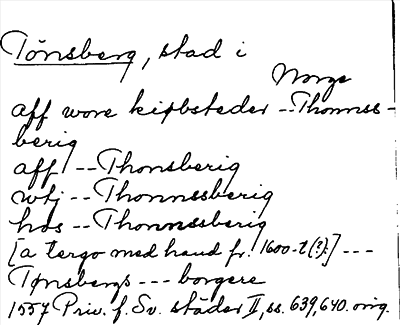 Tönsberg, stad i
Norge
aff wore kipbsteder -- Thonnss-
berig
aff -- Thonsberig
wtj -- Thonnssberig
hos -- Thonnssberig
[a tergo med hand fr. 1600-t(?):] ---
Tønsbergs --- borgere
1557 Priv. f. Sv. städer II, ss. 639, 640. orig.